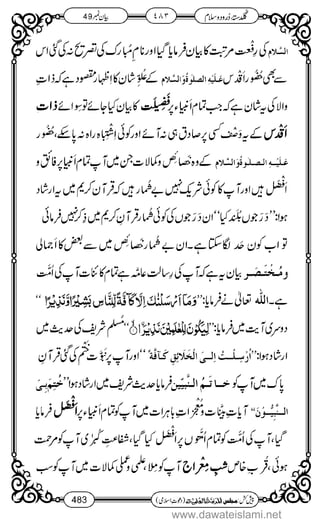 گلدستۂ دُرود و سلام ٤٨٣ بیان نمبر 49
السّلام کی رِفْعتِ مرتبت کا بیان فرمایا گیا اور نامِ مُبارَک کی تصریح نہ کی گئی اس
سے بھی حُضُورِ اَقْدَس عَلَيْهِ الصلوة والسلام کے عُلُوِّ شان کا اظہار مقصود ہے کہ ذاتِ
والا کی یہ شان ہے کہ جب تمام انبیا پر فَضِیلَت کا بیان کیا جائے تو سوائے ذاتِ
اَقْدَس کے یہ وَصْف کسی پر صادق ہی نہ آئے اور کوئی اِشتِباہ راہ نہ پاسکے، حُضُور
عَلَيْهِ الصلوة والسلام کے وہ خصائص وکمالات جن میں آپ تمام انبیا پر فائِق و
اَفْضَل ہیں اور آپ کا کوئی شریک نہیں بے شُمار ہیں کہ قرآنِ کریم میں یہ ارشاد
ہوا: ’’دَرَجوں بُلند کیا‘‘ ان دَرَجوں کی کوئی شُمار قرآنِ کریم میں ذِکْر نہیں فرمائی
تو اب کون حَد لگا سکتا ہے۔ ان بے شُمار خَصائِص میں سے بعض کا اِجمالی
ومُخْتَصَر بیان یہ ہے کہ آپ کی رِسالت عامّہ ہے تمام کائنات آپ کی اُمّت
ہے۔ اللہ تعالیٰ نے فرمایا: ’’وَمَاۤ اَرْسَلْنٰكَ اِلَّا كَآفَّةً لِّلنَّاسِ بَشِیْرًا وَّ نَذِیْرًا‘‘
دوسری آیت میں فرمایا: ’’لِیَكُوْنَ لِلْعٰلَمِیْنَ نَذِیْرًا‘‘ مُسلم شریف کی حدیث میں
ارشاد ہوا: ’’اُرْسِلْتُ اِلَی الْخَلَائِقِ كَافَّةً‘‘ اور آپ پر نُبُوَّت خَتْم کی گئی قرآنِ
پاک میں آپ کو خاتَمُ النَّبِيّٖن فرمایا حدیث شریف میں ارشاد ہوا ’’خُتِمَ بِیَ
النَّبِيُّوْنَ‘‘ آیاتِ بَیِّنات و مُعْجِزاتِ باہِرات میں آپ کو تمام انبیا پر اَفْضَل فرمایا
گیا، آپ کی اُمّت کو تمام اُمّتوں پر اَفْضَل کیا گیا، شَفاعتِ کُبریٰ آپ کو مرحمت
ہوئی، قُربِ خاص شبِ مِعْراج آپ کو مِلا، عِلمی و عَملی کمالات میں آپ کو سب
483
www.dawateislami.net